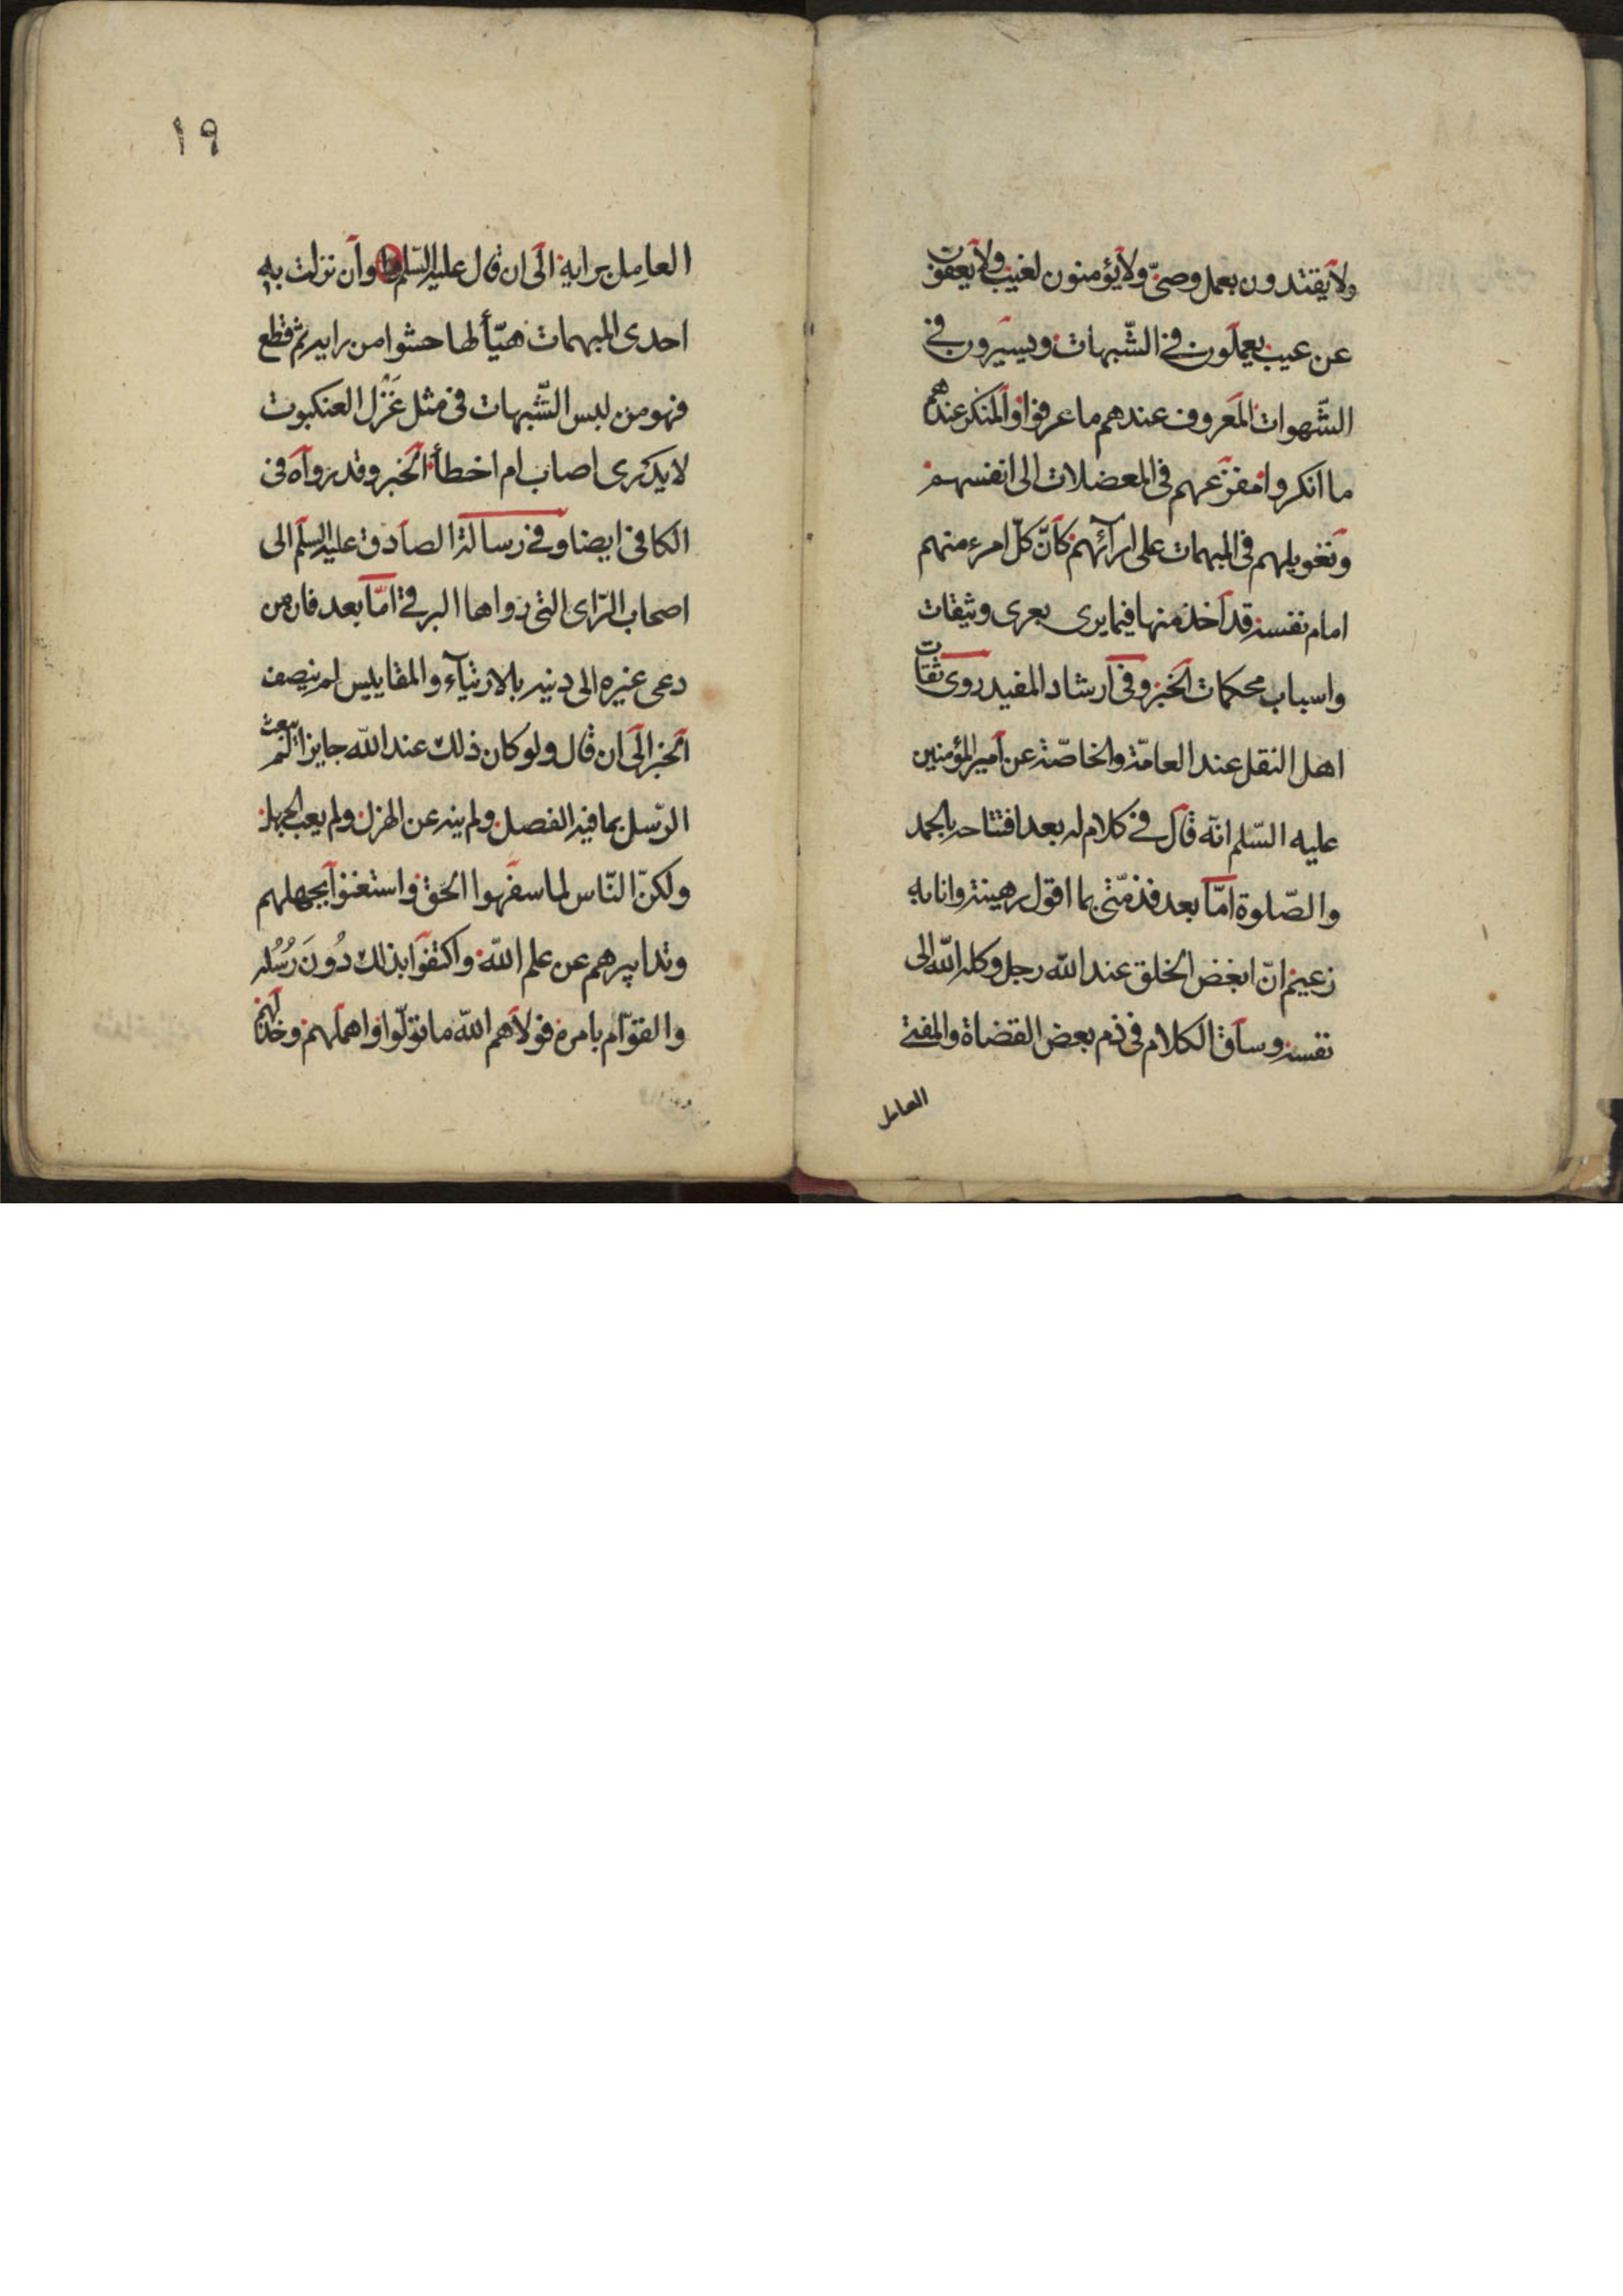 ولا يقتدون بعمل وصىّ ولا يؤمنون لغيب ولا يعفون
عن عيب يعملون فى الشّبهات ويسيرون فى
الشّهوات المعروف عندهم ما عرفوا والمنكر عندهم
ما انكروا مفزعهم فى المعضلات الى انفسهم
وتعويلهم فى المبهمات على ارآئهم كانّ كلّ امرء منهم
امام نفسه قد اخذ منها فيما يرى بعرى وثيقات
واسباب محكمات الخبر وفى ارشاد المفيد روى ثقات
اهل النقل عند العامّة والخاصّة عن امير المؤمنين
عليه السّلم انّه قال فى كلام له بعد افتتاحه بالحمد
والصّلوة امّا بعد فذمّتى بما اقول رهينة وانا به
زعيم انّ ابغض الخلق عند اللّه رجل وكله اللّه الى
نفسه وساق الكلام فى ذم بعض القضاة والمفتى
العامل
١٩
العامِل برايه الى ان قال عليه السّلم وان نزلت به
احدى المبهمات هيّأ لها حشوا من رايه ثم قطع
فهو من لبس الشّبهات فى مثل غَزْل العنكبوت
لا يدرى اصاب ام اخطأ الخبر وقد رواه فى
الكافى ايضا وفى رسالة الصادق عليه السلم الى
اصحاب الرّاى التى رواها البرقى امّا بعد فان من
دعى غيره الى دينه بالارتيآء والمقاييس لم ينصف
الخبر الى ان قال ولو كان ذلك عند اللّه جايزا لم يبعث
الرّسل بما فيه الفصل ولم ينه عن الهزل ولم يعب الجهل
ولكنّ النّاس لما سفهوا الحق واستغنوا بجهلهم
وتدابيرهم عن علم اللّه واكتفوا بذلك دُونَ رُسُله
والقوّام بامره فولاهم اللّه ما تولّوا واهملهم وخذلهم